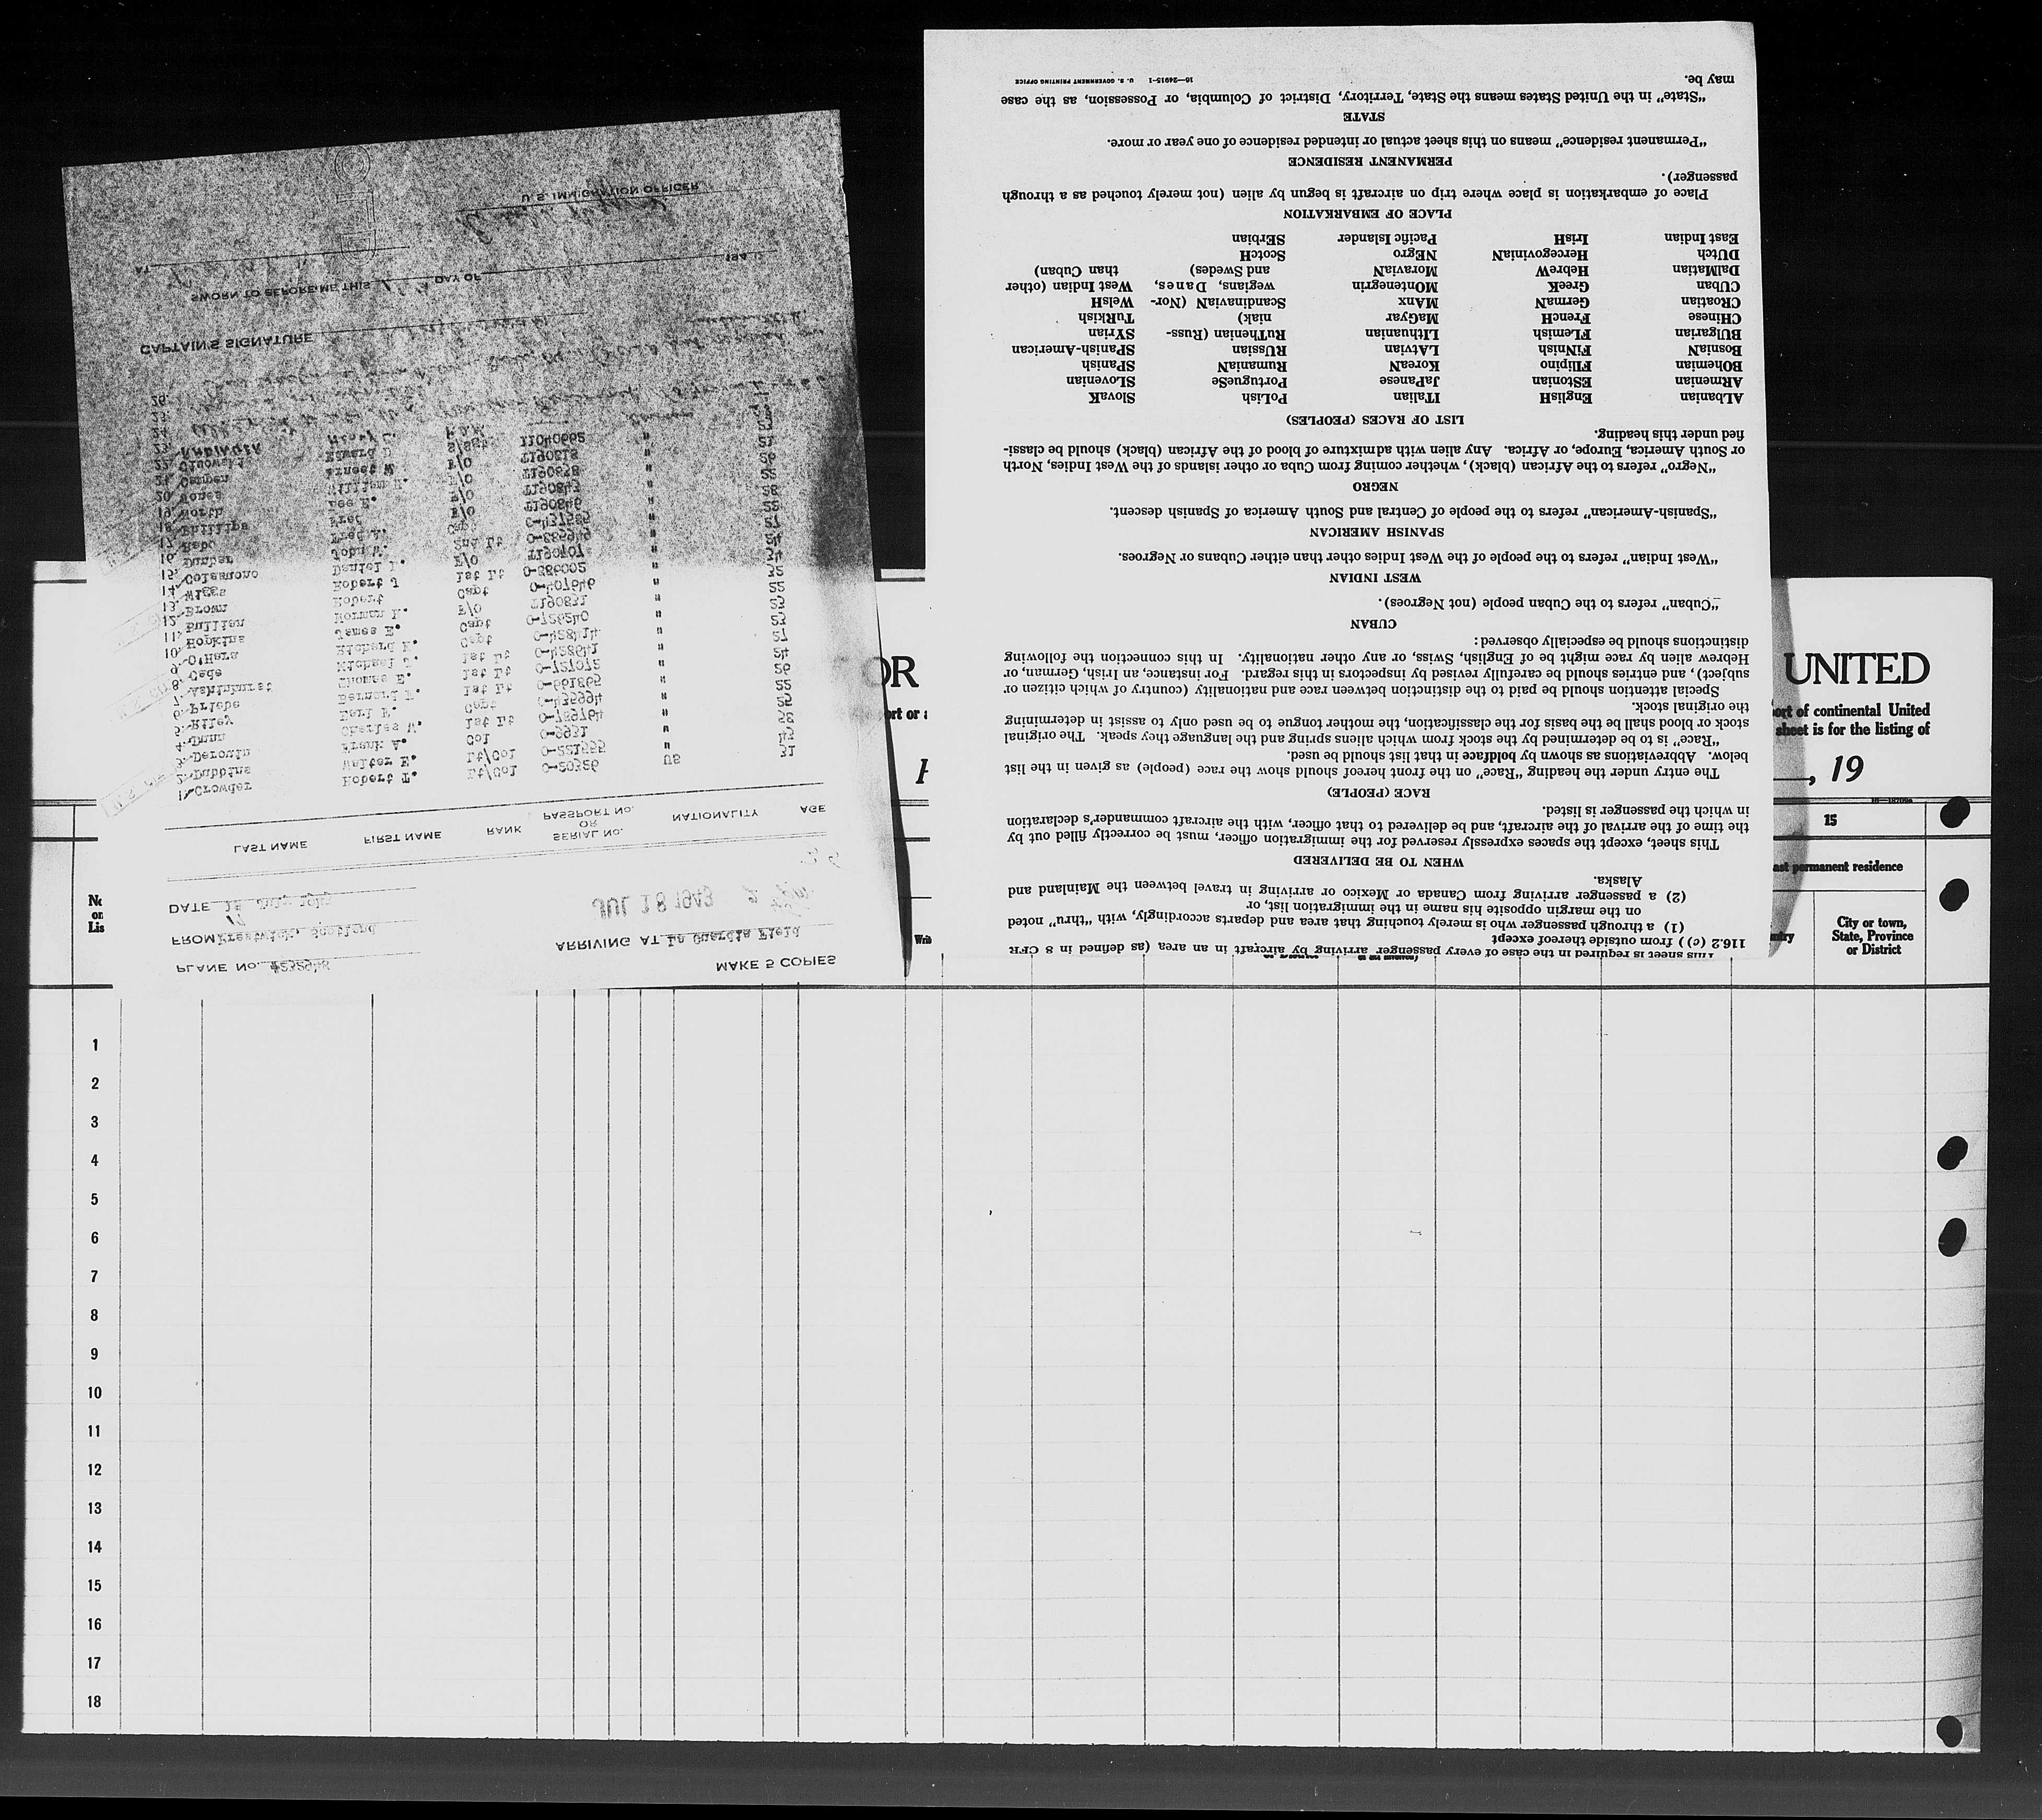 MAKE 5 COPIES
PLANE No. #232948
FROM Prestwick, Scotland
ARRIVING AT La Guardia Field
DATE 18 July 1943
17
JUL 18 1943
LAST NAME FIRST NAME RANK SERIAL No. OR PASSPORT No. NATIONALITY AGE
1. Crowder Robert T. Lt/Col O-20326 US 31
2. Dubbins Walter E. Lt/Col O-221555 " 43
3. Derouin Frank A. Col O-9931 " 52
4. Dunn Charles W. 1st Lt O-789764 " 25
5. Riley Earl F. Capt O-435994 " 22
6. Priebe Bernard F. 1st Lt O-661865 " 26
7. Ashinhurst Thomas E. 1st Lt O-727072 " 24
8. Gade Michael J. 1st Lt O-428641 " 27
9. O'Hara Richard K. Capt O-428414 " 23
10. Hopkins James E. Capt O-726240 " 23
11. Bullien Norman K. F/O T190831 " 22
12. Brown Robert Capt O-407646 " 32
13. Wiggs Robert J 1st Lt O-886002 " 34
14. Colesnono Daniel L. F/O T190707 " 24
15. Dunbar John W. 2nd Lt O-885949 " 27
16. Rabo Fred A. Capt O-437585 "
17. Phillips Fred F/O T190846 "
18. North Lee E. F/O T190843 "
19. Jones William H. F/O T190838 "
20. Campen Ernest W. F/O T190818 "
21. Edward D S/Sgt 11040662 "
22.
23.
24.
25.
26.
CAPTAIN'S SIGNATURE
SWORN TO BEFORE ME THIS DAY OF 194
AT
U.S. IMMIGRATION OFFICER
This sheet is required in the case of every passenger arriving by aircraft in an area (as defined in 8 CFR
116.2 (c)) from outside thereof except
(1) a through passenger who is merely touching that area and departs accordingly, with “thru” noted
on the margin opposite his name in the immigration list, or
(2) a passenger arriving from Canada or Mexico or arriving in travel between the Mainland and
Alaska.
WHEN TO BE DELIVERED
This sheet, except the spaces expressly reserved for the immigration officer, must be correctly filled out by
the time of the arrival of the aircraft, and be delivered to that officer, with the aircraft commander's declaration
in which the passenger is listed.
RACE (PEOPLE)
The entry under the heading “Race” on the front hereof should show the race (people) as given in the list
below. Abbreviations as shown by boldface in that list should be used.
“Race” is to be determined by the stock from which aliens spring and the language they speak. The original
stock or blood shall be the basis for the classification, the mother tongue to be used only to assist in determining
the original stock.
Special attention should be paid to the distinction between race and nationality (country of which citizen or
subject), and entries should be carefully revised by inspectors in this regard. For instance, an Irish, German, or
Hebrew alien by race might be of English, Swiss, or any other nationality. In this connection the following
distinctions should be especially observed:
CUBAN
“Cuban” refers to the Cuban people (not Negroes).
WEST INDIAN
“West Indian” refers to the people of the West Indies other than either Cubans or Negroes.
SPANISH AMERICAN
“Spanish-American” refers to the people of Central and South America of Spanish descent.
NEGRO
“Negro” refers to the African (black), whether coming from Cuba or other islands of the West Indies, North
or South America, Europe, or Africa. Any alien with admixture of blood of the African (black) should be classi-
fied under this heading.
LIST OF RACES (PEOPLES)
ALbanian EnglisH ITalian PoLish SlovaK
ARMenian EStonian JaPanese PortugueSe SLovenian
BOhemian FIlipino KoreaN RumaniaN SPanish
BosniaN FiNnish LAtvian RUssian SPanish-American
BUlgarian FLemish LIthuanian RuThenian (Russ- SYrian
CHinese FrencH MaGyar niak) TuRkish
CRoatian GermaN MAnx ScandinaviaN (Nor- WelsH
CUban GreeK MOntenegrin wegians, Danes, West Indian (other
DalMatian HebreW MoraviaN and Swedes) than Cuban)
DUtch HercegoviniaN NEgro ScotcH
East Indian IrisH Pacific Islander SErbian
PLACE OF EMBARKATION
Place of embarkation is place where trip on aircraft is begun by alien (not merely touched as a through
passenger).
PERMANENT RESIDENCE
“Permanent residence” means on this sheet actual or intended residence of one year or more.
STATE
“State” in the United States means the State, Territory, District of Columbia, or Possession, as the case
may be.
16—24915-1 U. S. GOVERNMENT PRINTING OFFICE
OR UNITED
ort or a
ort of continental United
sheet is for the listing of
, 19
15
ast permanent residence
No
on
Lis
Writ
ntry
City or town,
State, Province
or District
1
2
3
4
5
6
7
8
9
10
11
12
13
14
15
16
17
18